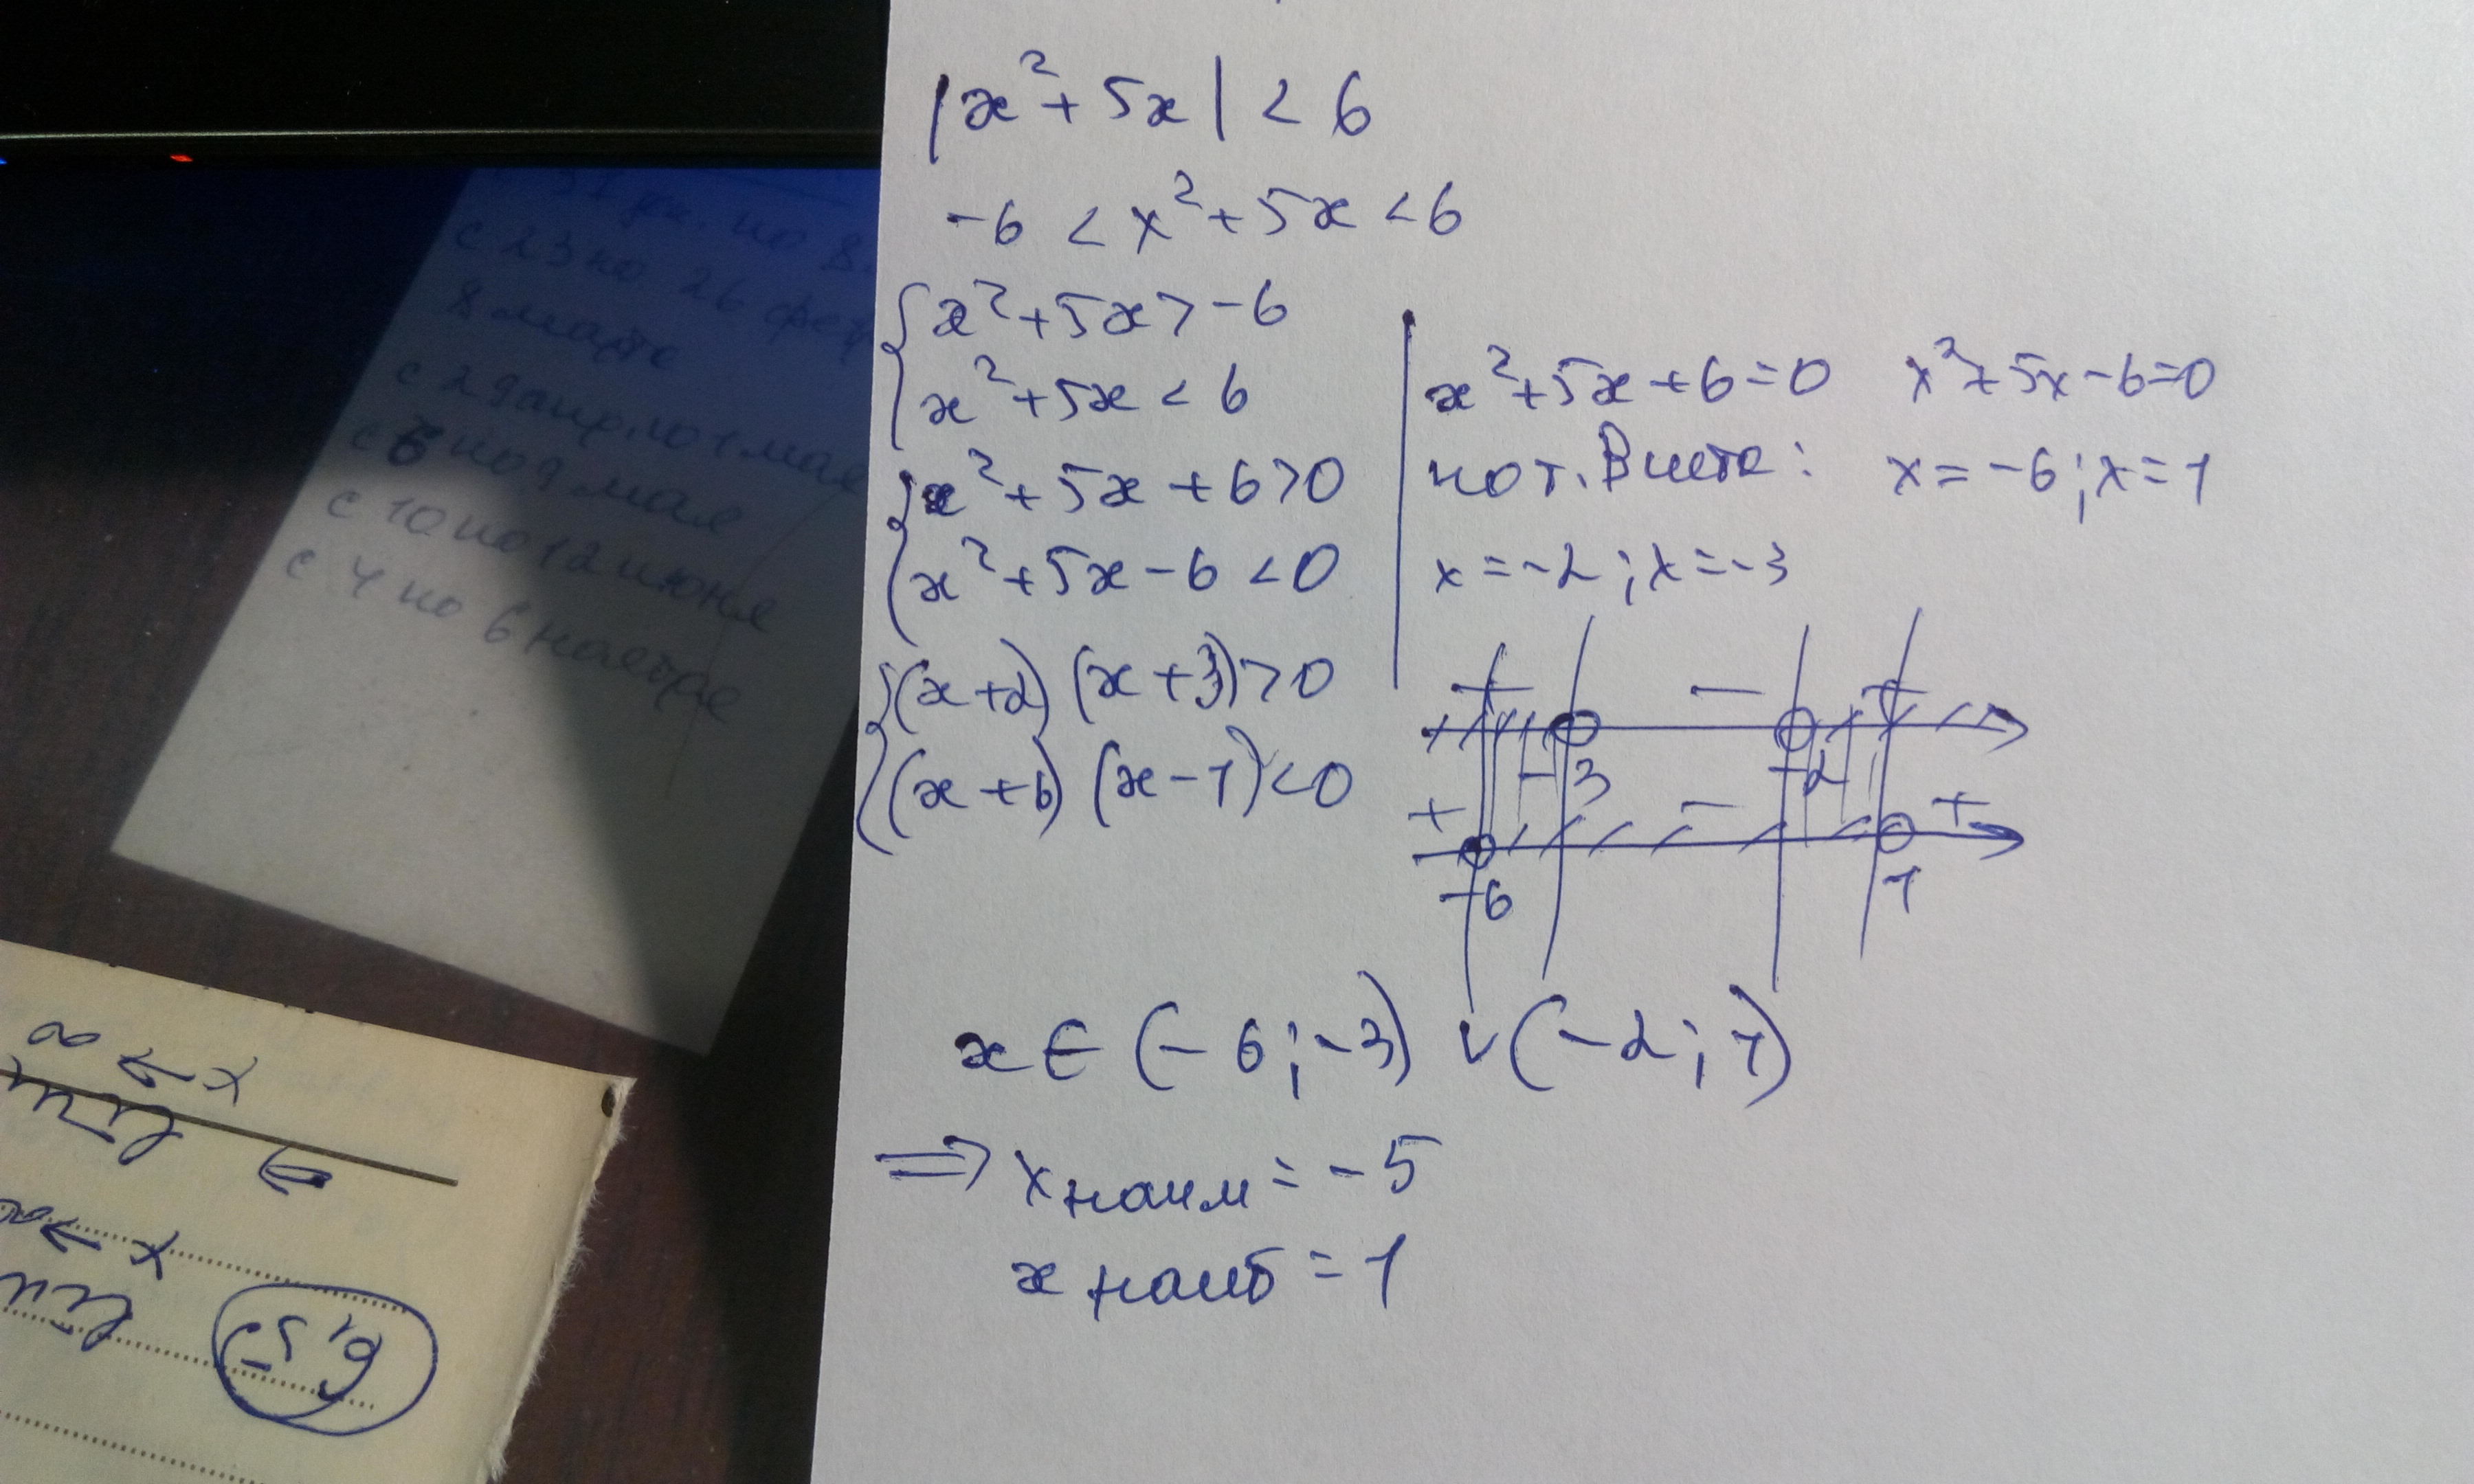 |x²+5x| < 6
-6 < x²+5x < 6
x²+5x > -6
x²+5x < 6
x²+5x+6>0
x²+5x-6<0
(x+2)(x+3)>0
(x+6)(x-1)<0
x²+5x+6=0 x²+5x-6=0
по т. Виета: x=-6; x=1
x=-2; x=-3
+ - +
-3 -2
+ - +
-6 1
x∈(-6;-3)∪(-2;1)
⇒ x наим = -5
x наиб = 1
по 8
с 23 по 26 фев
8 марта
с 29 апр. по 1 мая
с 6 по 9 мая
с 10 по 12 июня
с 4 по 6 ноября
x→∞
lim
x→
lim